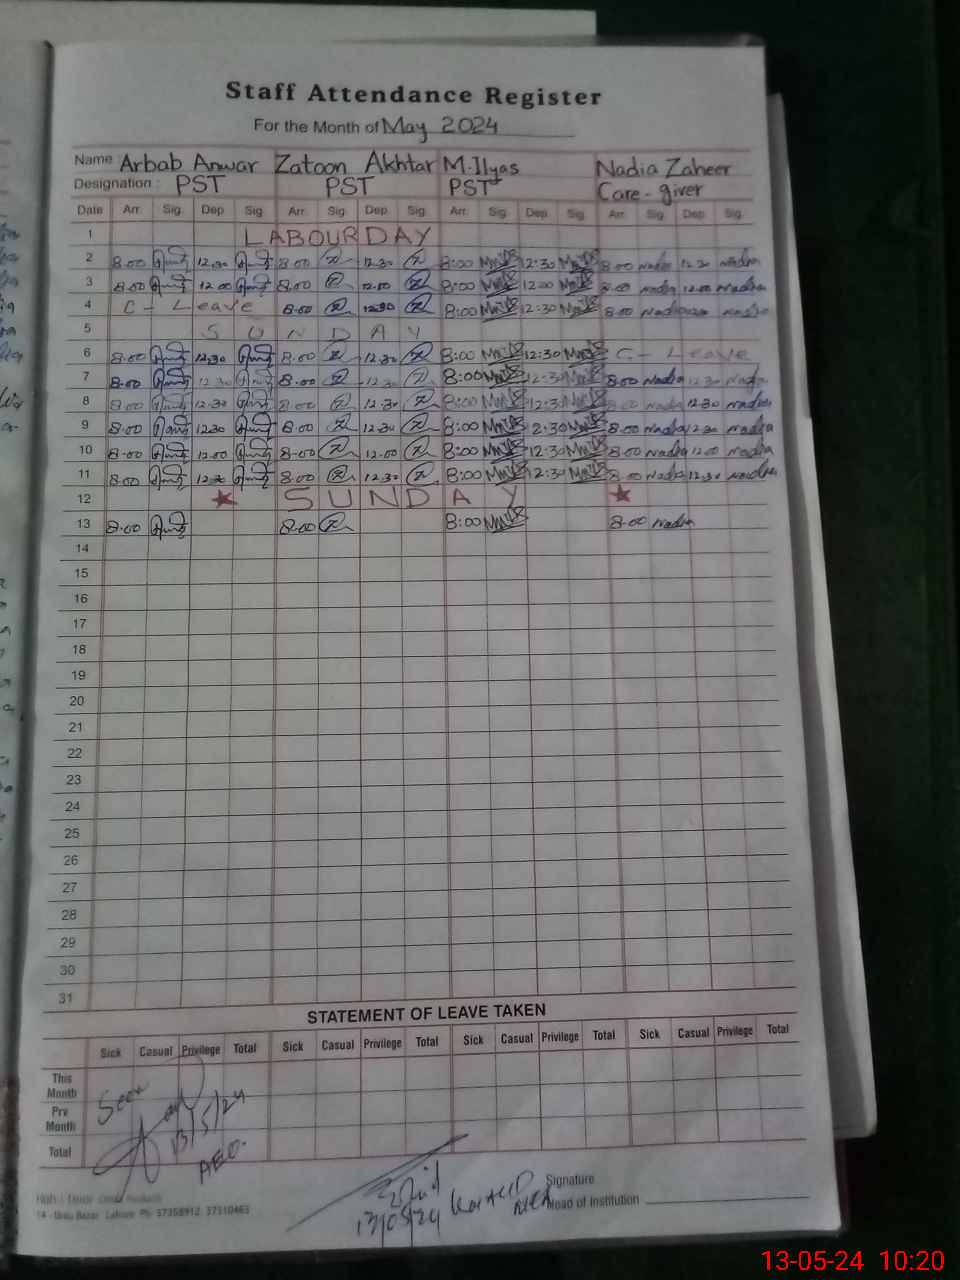 Staff Attendance Register
For the Month of May 2024
Name : Arbab Anwar Zatoon Akhtar M.Ilyas Nadia Zaheer
Designation : PST PST PST Care-giver
Date Arr. Sig. Dep. Sig. Arr. Sig. Dep. Sig. Arr. Sig. Dep. Sig. Arr. Sig. Dep. Sig.
1 LABOUR DAY
2 8.00 12.30 8.00 12.30 8:00 12:30 8.00 Nadia 12.30 Nadia
3 8.00 12.00 8.00 12.00 8:00 12:00 8.00 Nadia 12.00 Nadia
4 C - Leave 8.00 12.30 8:00 12:30 8.00 Nadia Nadia
5 SUNDAY
6 8.00 12.30 8.00 12.30 8:00 12:30 C - Leave
7 8.00 12.30 8.00 12.30 8:00 12:30 8.00 Nadia 12.30 Nadia
8 8.00 12.30 8.00 12.30 8:00 12:30 8.00 Nadia 12.30 Nadia
9 8.00 12.30 8.00 12.30 8:00 2:30 8.00 Nadia 12.30 Nadia
10 8.00 12.00 8.00 12.00 8:00 12:30 8.00 Nadia 12.00 Nadia
11 8.00 12.30 8.00 12.30 8:00 12:30 8.00 Nadia 12.30 Nadia
12 SUNDAY
13 8.00 8.00 8:00 8.00 Nadia
14
15
16
17
18
19
20
21
22
23
24
25
26
27
28
29
30
31
STATEMENT OF LEAVE TAKEN
Sick Casual Privilege Total Sick Casual Privilege Total Sick Casual Privilege Total Sick Casual Privilege Total
This Month
Prv Month
Total
Seen
13/5/24
AEO.
13/05/24
Signature
Head of Institution
14 - Urdu Bazar, Lahore Ph: 37358912 37310463
13-05-24 10:20